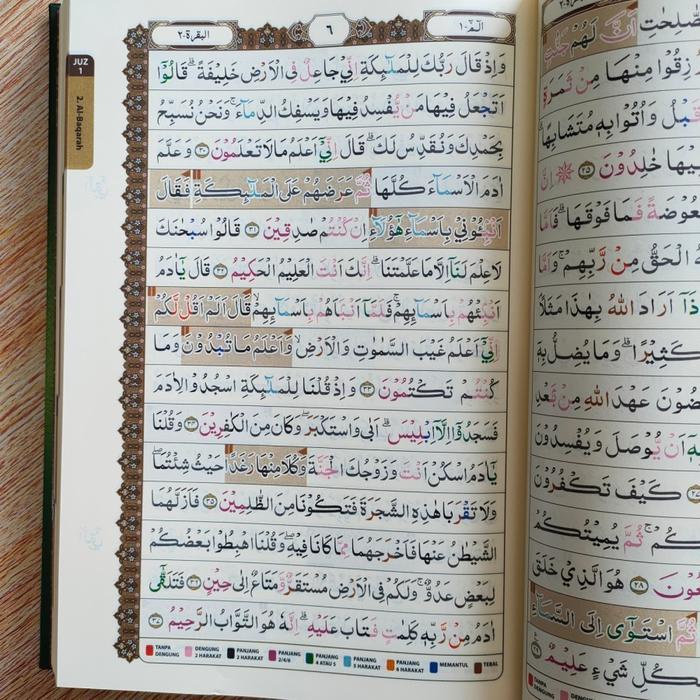 JUZ 1
2. Al-Baqarah
البقرة ٢
٦
الٓمّٓ ١
وَاِذْ قَالَ رَبُّكَ لِلْمَلٰۤىِٕكَةِ اِنِّيْ جَاعِلٌ فِى الْاَرْضِ خَلِيْفَةً ۗ قَالُوْٓا
اَتَجْعَلُ فِيْهَا مَنْ يُّفْسِدُ فِيْهَا وَيَسْفِكُ الدِّمَاۤءَۚ وَنَحْنُ نُسَبِّحُ
بِحَمْدِكَ وَنُقَدِّسُ لَكَ ۗ قَالَ اِنِّيْٓ اَعْلَمُ مَا لَا تَعْلَمُوْنَ ٣٠ وَعَلَّمَ
اٰدَمَ الْاَسْمَاۤءَ كُلَّهَا ثُمَّ عَرَضَهُمْ عَلَى الْمَلٰۤىِٕكَةِ فَقَالَ
اَنْۢبِـُٔوْنِيْ بِاَسْمَاۤءِ هٰٓؤُلَاۤءِ اِنْ كُنْتُمْ صٰدِقِيْنَ ٣١ قَالُوْا سُبْحٰنَكَ
لَا عِلْمَ لَنَآ اِلَّا مَا عَلَّمْتَنَا ۗاِنَّكَ اَنْتَ الْعَلِيْمُ الْحَكِيْمُ ٣٢ قَالَ يٰٓاٰدَمُ
اَنْۢبِئْهُمْ بِاَسْمَاۤىِٕهِمْ ۚ فَلَمَّآ اَنْۢبَاَهُمْ بِاَسْمَاۤىِٕهِمْۙ قَالَ اَلَمْ اَقُلْ لَّكُمْ
اِنِّيْٓ اَعْلَمُ غَيْبَ السَّمٰوٰتِ وَالْاَرْضِۙ وَاَعْلَمُ مَا تُبْدُوْنَ وَمَا
كُنْتُمْ تَكْتُمُوْنَ ٣٣ وَاِذْ قُلْنَا لِلْمَلٰۤىِٕكَةِ اسْجُدُوْا لِاٰدَمَ
فَسَجَدُوْٓا اِلَّآ اِبْلِيْسَۗ اَبٰى وَاسْتَكْبَرَۖ وَكَانَ مِنَ الْكٰفِرِيْنَ ٣٤ وَقُلْنَا
يٰٓاٰدَمُ اسْكُنْ اَنْتَ وَزَوْجُكَ الْجَنَّةَ وَكُلَا مِنْهَا رَغَدًا حَيْثُ شِئْتُمَاۖ
وَلَا تَقْرَبَا هٰذِهِ الشَّجَرَةَ فَتَكُوْنَا مِنَ الظّٰلِمِيْنَ ٣٥ فَاَزَلَّهُمَا
الشَّيْطٰنُ عَنْهَا فَاَخْرَجَهُمَا مِمَّا كَانَا فِيْهِۖ وَقُلْنَا اهْبِطُوْا بَعْضُكُمْ
لِبَعْضٍ عَدُوٌّ ۚ وَلَكُمْ فِى الْاَرْضِ مُسْتَقَرٌّ وَّمَتَاعٌ اِلٰى حِيْنٍ ٣٦ فَتَلَقّٰٓى
اٰدَمُ مِنْ رَّبِّهٖ كَلِمٰتٍ فَتَابَ عَلَيْهِ ۗ اِنَّهٗ هُوَ التَّوَّابُ الرَّحِيْمُ ٣٧
TANPA DENGUNG
DENGUNG 2 HARAKAT
PANJANG 2 HARAKAT
PANJANG 2/4/6
PANJANG 4 ATAU 5
PANJANG 5 HARAKAT
PANJANG 6 HARAKAT
MEMANTUL
TEBAL
اَنَّ لَهُمْ جَنّٰتٍ
رُزِقُوْا مِنْهَا مِنْ ثَمَرَةٍ
قَبْلُ وَاُتُوْا بِهٖ مُتَشَابِهًا
خٰلِدُوْنَ ٢٥ اِنَّ
بَعُوْضَةً فَمَا فَوْقَهَا ۗ فَاَمَّا
الْحَقُّ مِنْ رَّبِّهِمْ ۚ وَاَمَّا
اَرَادَ اللّٰهُ بِهٰذَا مَثَلًا
كَثِيْرًا ۗ وَمَا يُضِلُّ بِهٖٓ
عَهْدَ اللّٰهِ مِنْۢ بَعْدِ
اَنْ يُّوْصَلَ وَيُفْسِدُوْنَ
كَيْفَ تَكْفُرُوْنَ
ثُمَّ يُمِيْتُكُمْ
٢٨ هُوَ الَّذِيْ خَلَقَ
ثُمَّ اسْتَوٰٓى اِلَى السَّمَاۤءِ
شَيْءٍ عَلِيْمٌ ٢٩
TANPA DENGUNG